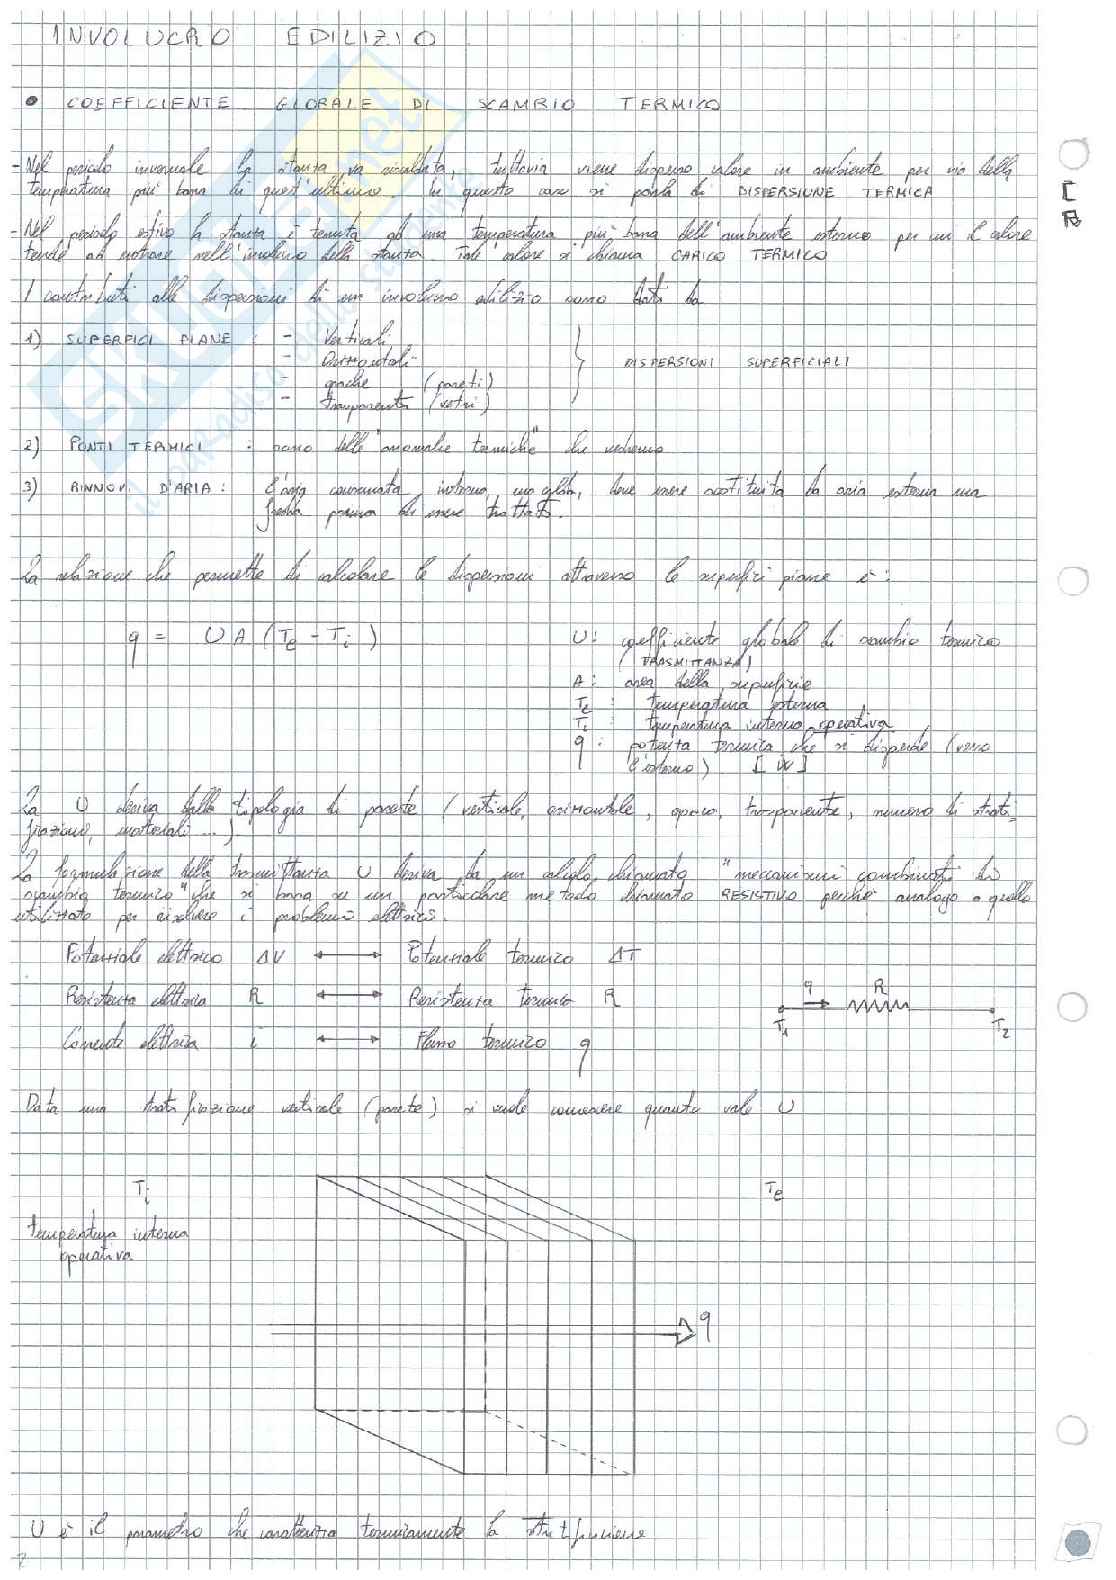 INVOLUCRO EDILIZIO
• COEFFICIENTE GLOBALE DI SCAMBIO TERMICO
- Nel periodo invernale la stanza va riscaldata, tuttavia viene disperso calore in ambiente per via della
temperatura più bassa di quest'ultimo. In questo caso si parla di DISPERSIONE TERMICA
- Nel periodo estivo la stanza è tenuta ad una temperatura più bassa dell'ambiente esterno per cui il calore
tende ad entrare nell'involucro della stanza. Tale calore si chiama CARICO TERMICO
I contributi alle dispersioni di un involucro edilizio sono dati da
1) SUPERFICI PIANE : - Verticali
- Orizzontali
- opache (pareti)
- trasparenti (vetri)
DISPERSIONI SUPERFICIALI
2) PONTI TERMICI : sono delle "anomalie termiche" che vedremo
3) RINNOV. D'ARIA : L'aria consumata, interna, deve essere sostituita da aria esterna ma
prima di essere trattata.
La relazione che permette di calcolare le dispersioni attraverso le superfici piane è :
q = U A (Te - Ti)
U : coefficiente globale di scambio termico
(TRASMITTANZA)
A : area della superficie
Te : temperatura esterna
Ti : temperatura interna operativa
q : potenza termica che si disperde (verso
l'esterno) [W]
La U deriva dalla tipologia di parete (verticale, orizzontale, opaca, trasparente, numero di strati-
ficazioni, materiali ...)
La formulazione della trasmittanza U deriva da un calcolo chiamato "meccanismi combinati di
scambio termico" che si basa su un particolare metodo chiamato RESISTIVO perché analogo a quello
utilizzato per risolvere i problemi elettrici.
Potenziale elettrico ΔV ↔ Potenziale termico ΔT
Resistenza elettrica R ↔ Resistenza termica R
q R
T1 T2
Corrente elettrica i ↔ Flusso termico q
Data una stratificazione verticale (parete) si vuole conoscere quanto vale U
Ti Te
temperatura interna
operativa
q
U è il parametro che caratterizza termicamente la stratificazione
SKUOLA.net
il paradiso dello studente